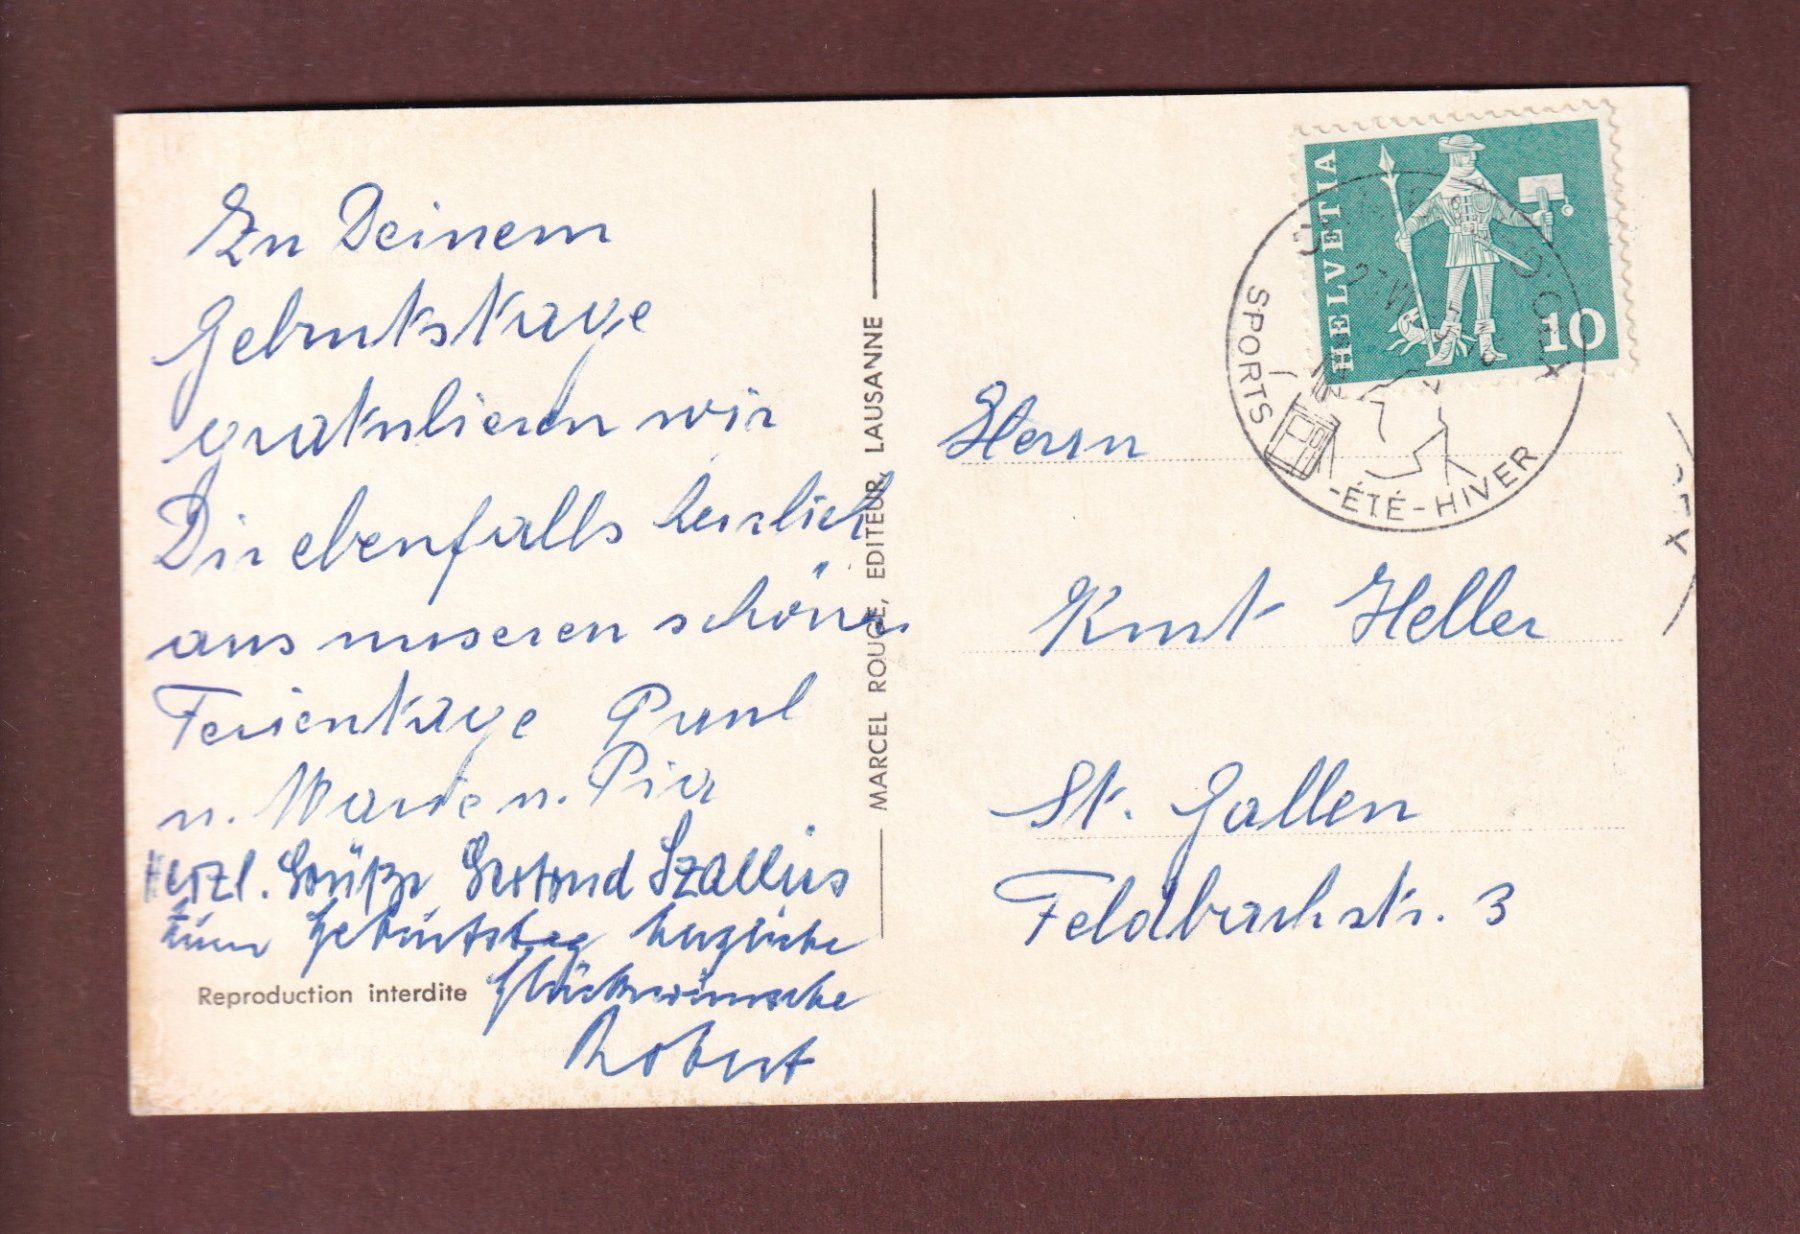 Zu Deinem
Geburtstage
gratulieren wir
Dir ebenfalls herzlich
aus unseren schönen
Ferientage Paul
u. Marie u. Pia
Herzl. Grüße Gertrud
zum Geburtstag herzliche
Glückwünsche
Robert
Reproduction interdite
MARCEL ROUGE, EDITEUR, LAUSANNE
HELVETIA
10
SPORTS
-ÉTÉ-HIVER
Herrn
Kurt Heller
St. Gallen
Feldbachstr. 3